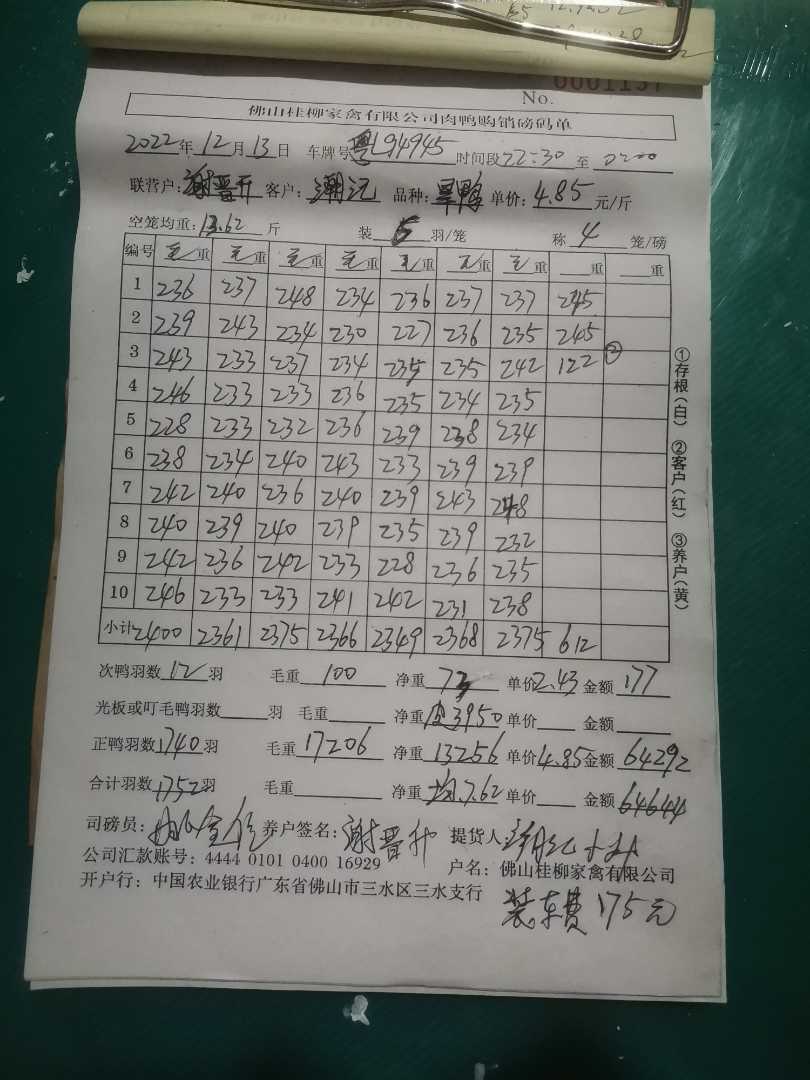 No.
佛山桂柳家禽有限公司肉鸭购销磅码单
2022年12月13日 车牌号粤L94945 时间段22:30至
联营户:谢晋升 客户: 品种:旱鸭 单价:4.85元/斤
空笼均重:13.62斤 装5羽/笼 称4笼/磅
编号 毛重 毛重 毛重 毛重 毛重 毛重 毛重 重 重
1 236 237 248 234 236 237 237 245
2 239 243 234 230 227 236 235 245
3 243 233 237 234 235 235 242 122 ②
4 246 233 233 236 235 234 235
5 228 233 232 236 239 238 234
6 238 234 240 243 233 239 239
7 242 240 236 240 239 243 248
8 240 239 240 239 235 239 232
9 242 236 242 233 228 236 235
10 246 233 233 241 242 231 238
小计 2400 2361 2375 2366 2349 2368 2375 612
次鸭羽数12羽 毛重100 净重73 单价2.43 金额177
光板或叮毛鸭羽数 羽 毛重 净重皮3950 单价 金额
正鸭羽数1740羽 毛重17206 净重13256 单价4.85 金额64292
合计羽数1752羽 毛重 净重均7.62 单价 金额64644
司磅员: 养户签名:谢晋升 提货人:
公司汇款账号: 4444 0101 0400 16929 户名: 佛山桂柳家禽有限公司
开户行: 中国农业银行广东省佛山市三水区三水支行
装车费175元
①存根(白) ②客户(红) ③养户(黄)